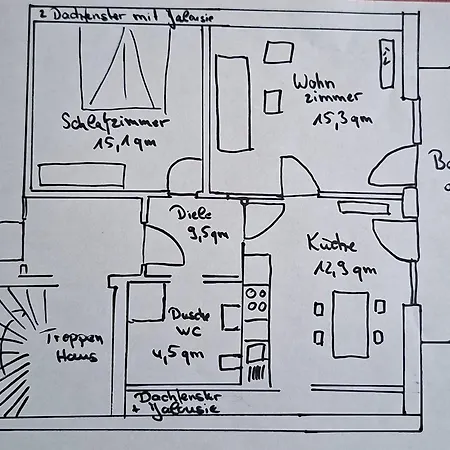 2 Dachfenster mit Jalousie
Wohn
zimmer
15,3 qm
Schlafzimmer
15,1 qm
Diele
9,5 qm
Küche
12,9 qm
Dusche
WC
4,5 qm
Treppen
Haus
Dachfenster
+ Jalousie